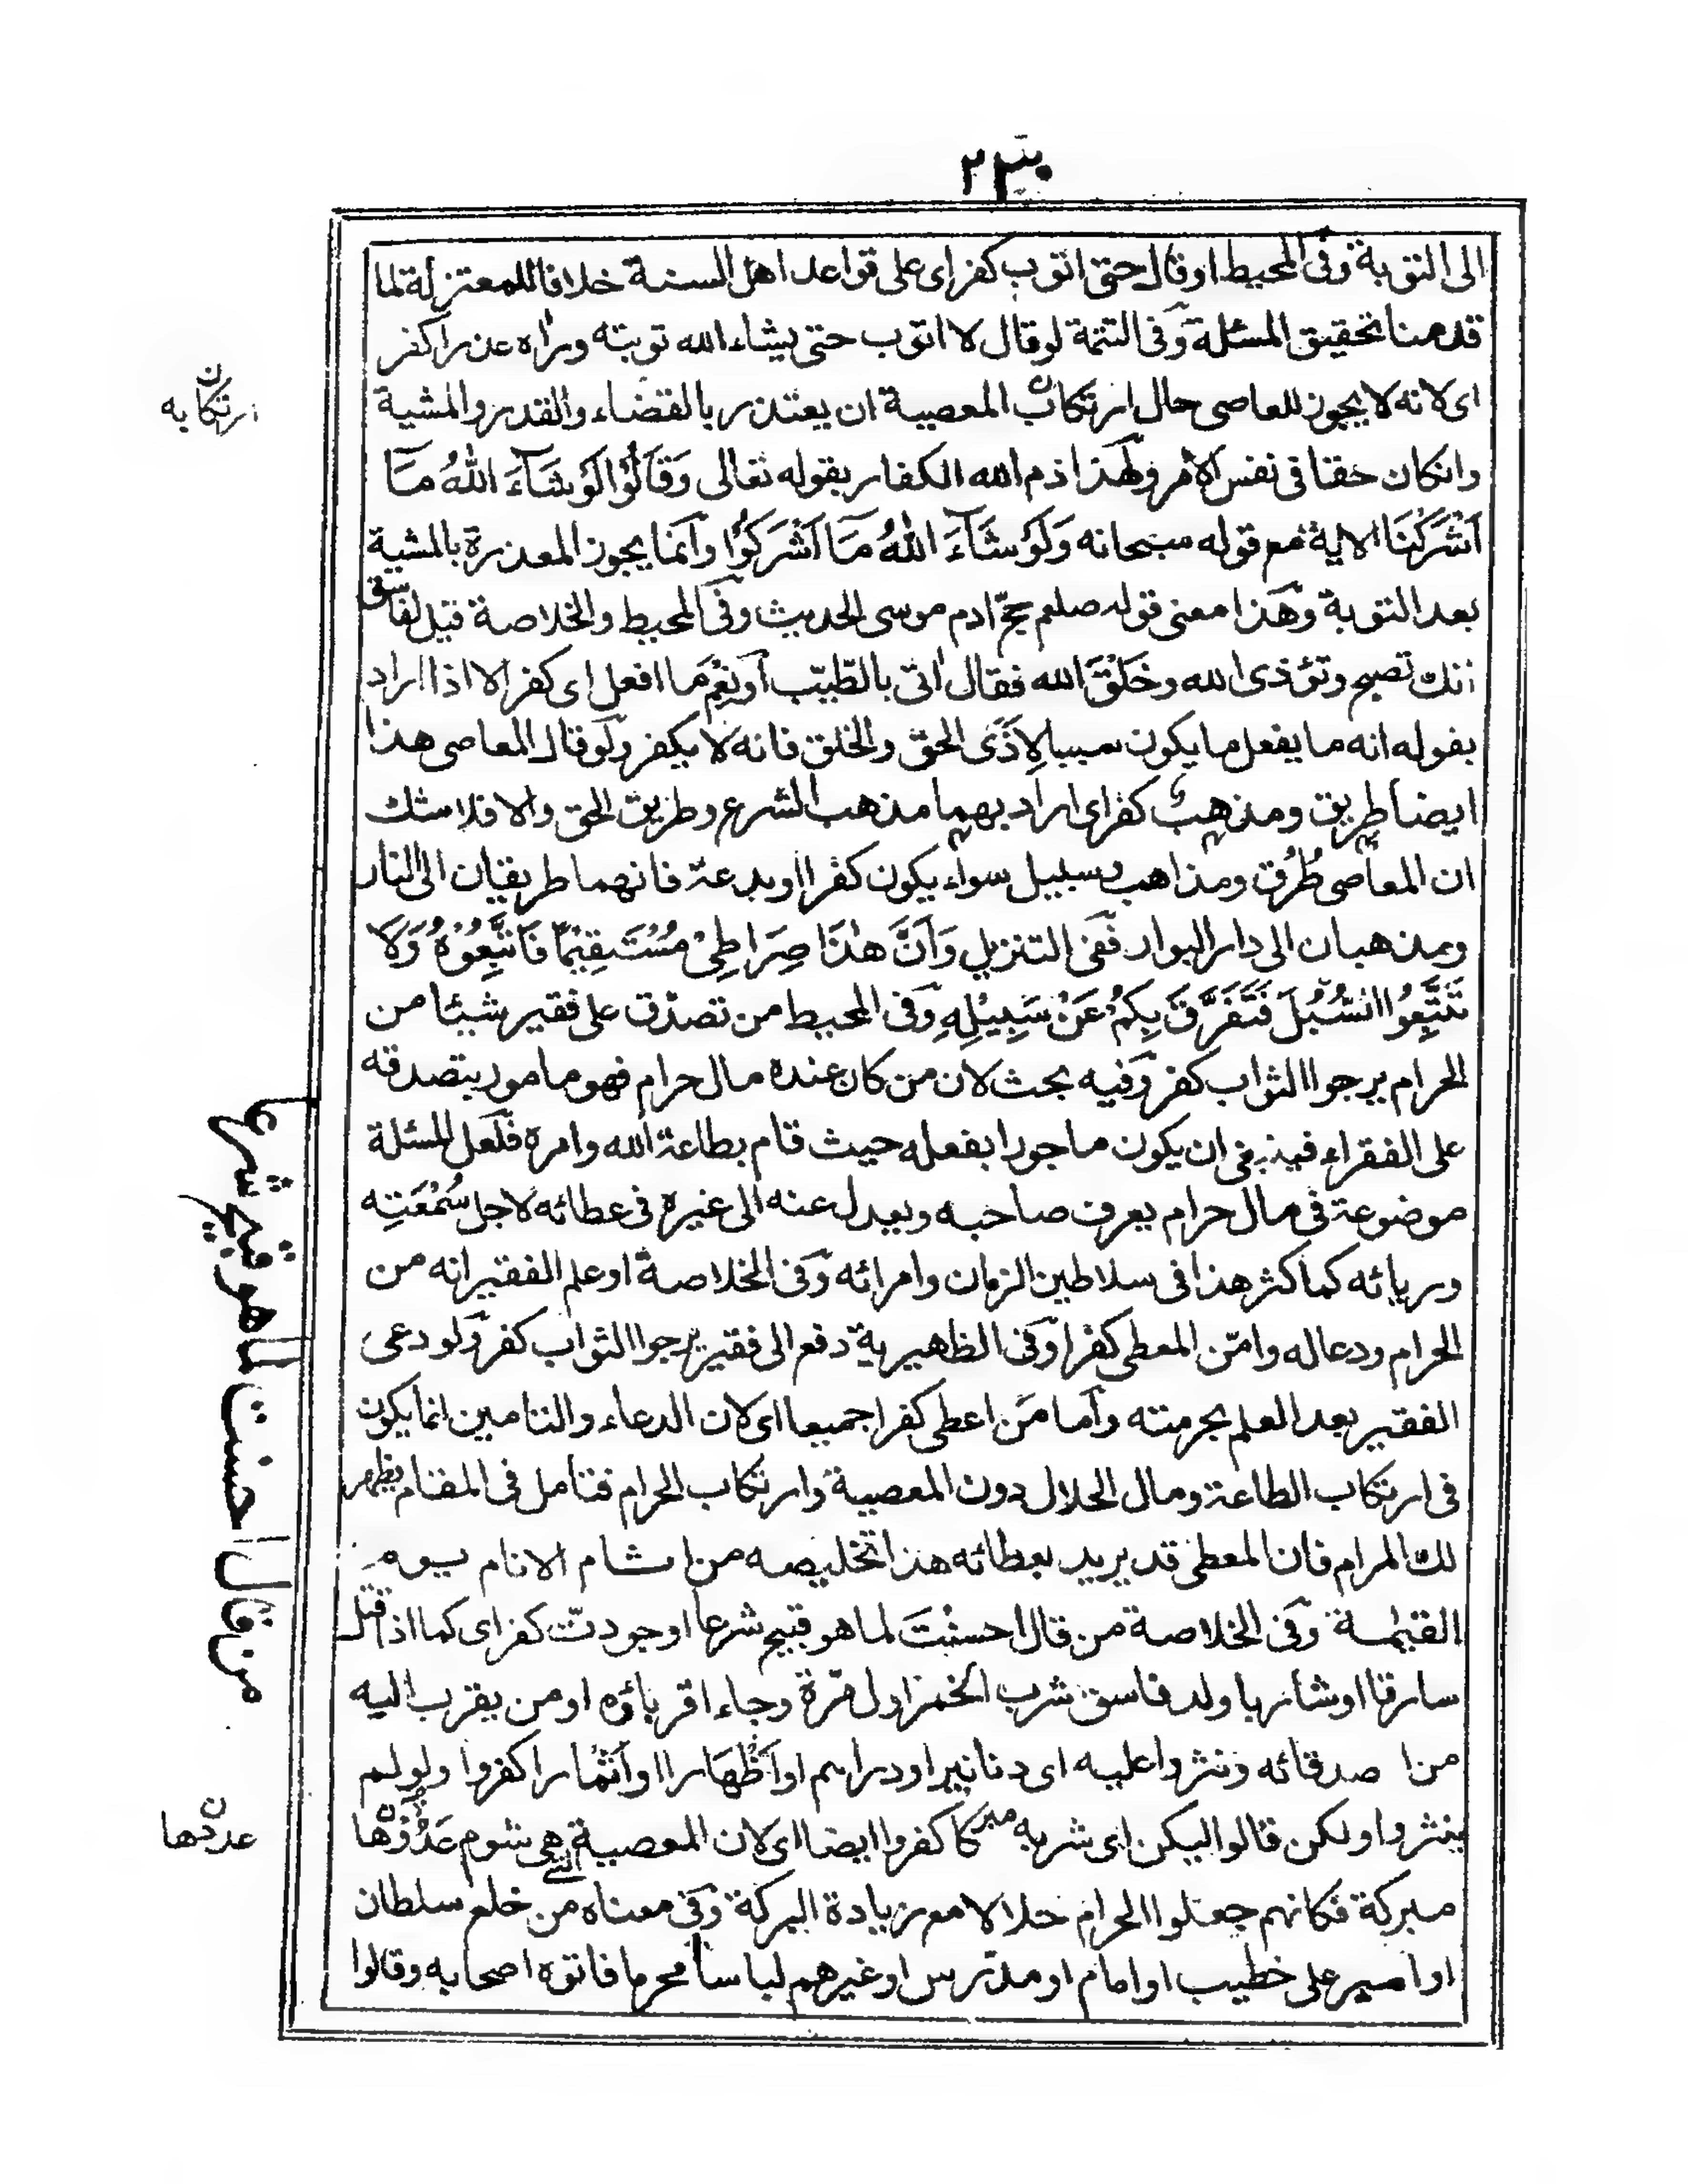 ٢٣٠
الى التوبة وفى المحيط او قال حتى اتوب كفر اى على قواعد اهل السنة خلافا للمعتزلة لما
قدمنا تحقيق المسئلة وفى التتمة لو قال لا اتوب حتى يشاء الله توبته وراه عذرا كفر
اى لانه لا يجوز للعاصى حال ارتكاب المعصية ان يعتذر بالقضاء والقدر والمشية
ارتكابه
وانكان حقا فى نفس الامر ولهذا ذم الله الكفار بقوله تعالى وَقَالُوْا لَوْ شَآءَ اللهُ مَآ
اَشْرَكْنَا الاية مع قوله سبحانه وَلَوْ شَآءَ اللهُ مَآ اَشْرَكُوْا وانما يجوز المعذرة بالمشية
بعد التوبة وهذا معنى قوله صلعم حجّ ادم موسى الحديث وفى المحيط والخلاصة قيل لفاسق
انك تصبح وتؤذى الله وخَلْقَ الله فقال اتى بالطّيّب او نِعْمَ ما افعل اى كفر الا اذا اراد
بقوله انه ما يفعل ما يكون سببا لِاَذَى الحق والخلق فانه لا يكفر ولو قال المعاصى هذا
ايضا طريق ومذهب كفر اى اراد بهما مذهب الشرع وطريق الحق والا فلا شك
ان المعاصى طُرُق ومذاهب وسبيل سواء يكون كفرا او بدعة فانهما طريقان الى النار
ومذهبان الى دار البوار ففى التنزيل وَاَنَّ هٰذَا صِرَاطِىْ مُسْتَقِيْمًا فَاتَّبِعُوْهُ وَلَا
تَتَّبِعُوا السُّبُلَ فَتَفَرَّقَ بِكُمْ عَنْ سَبِيْلِهِ وفى المحيط من تصدّق على فقير شيئا من
الحرام يرجوا الثواب كفر وفيه بحث لان من كان عنده مال حرام فهو مامور بتصدقه
على الفقراء فينبغى ان يكون ماجورا بفعله حيث قام بطاعة الله وامره فلعل المسئلة
موضوعة فى مال حرام يعرف صاحبه ويعدل عنه الى غيره فى عطائه لاجل سُمْعَتِه
وريائه كما كثر هذا فى سلاطين الزمان وامرائه وفى الخلاصة او علم الفقير انه من
الحرام ودعا له وامّن المعطى كفرا وفى الظهيرية دفع الى فقير يرجوا الثواب كفر ولو دعى
الفقير بعد العلم بحرمته وأما مَن اعطى كفرا جميعا اى لان الدعاء والتامين انما يكون
فى ارتكاب الطاعة ومال الحلال دون المعصية وارتكاب الحرام فتامل فى المقام يظهر
لك المرام فان المعطى قد يريد بعطائه هذا تخليصه من اشام الانام يوم
القيٰمة وفى الخلاصة من قال احسنْتَ لما هو قبيح شرعا او جودتّ كفر اى كما اذا قتل
من قال احسنت لما هو قبيح شرعا
سارقا او شاربا ولد فاسق شرب الخمر اول مرّة وجاء اقرباؤه او من يقرب اليه
من اصدقائه ونثروا عليه اى دنانير او دراهم او اَظْهَارا او اَثْمَارا كفروا ولو لم
ينثروا ولكن قالوا ليكن اى شربه مبركا كفروا ايضا اى لان المعصية التى هى شوم عَدُّوْها
عدوها
مبركة فكانهم جعلوا الحرام حلالا مع زيادة البركة وفى معناه من خلع سلطان
او امير على خطيب او امام او مدرس او غيرهم لباسا محرما فاتوه اصحابه وقالوا